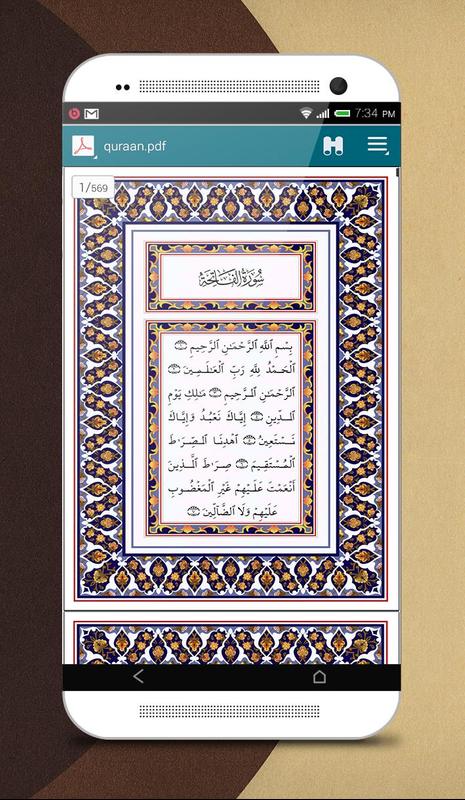 7:34 PM
quraan.pdf
1/569
سُورَةُ الفَاتِحَة
بِسْمِ ٱللَّهِ ٱلرَّحْمَـٰنِ ٱلرَّحِيمِ ۝
ٱلْحَمْدُ لِلَّهِ رَبِّ ٱلْعَـٰلَمِينَ ۝
ٱلرَّحْمَـٰنِ ٱلرَّحِيمِ ۝ مَـٰلِكِ يَوْمِ
ٱلدِّينِ ۝ إِيَّاكَ نَعْبُدُ وَإِيَّاكَ
نَسْتَعِينُ ۝ ٱهْدِنَا ٱلصِّرَٰطَ
ٱلْمُسْتَقِيمَ ۝ صِرَٰطَ ٱلَّذِينَ
أَنْعَمْتَ عَلَيْهِمْ غَيْرِ ٱلْمَغْضُوبِ
عَلَيْهِمْ وَلَا ٱلضَّآلِّينَ ۝